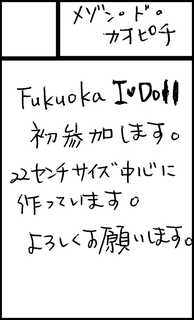 メゾン・ド・
カオピチ
Fukuoka I♥Doll
初参加します。
22センチサイズ中心に
作っています。
よろしくお願いします。